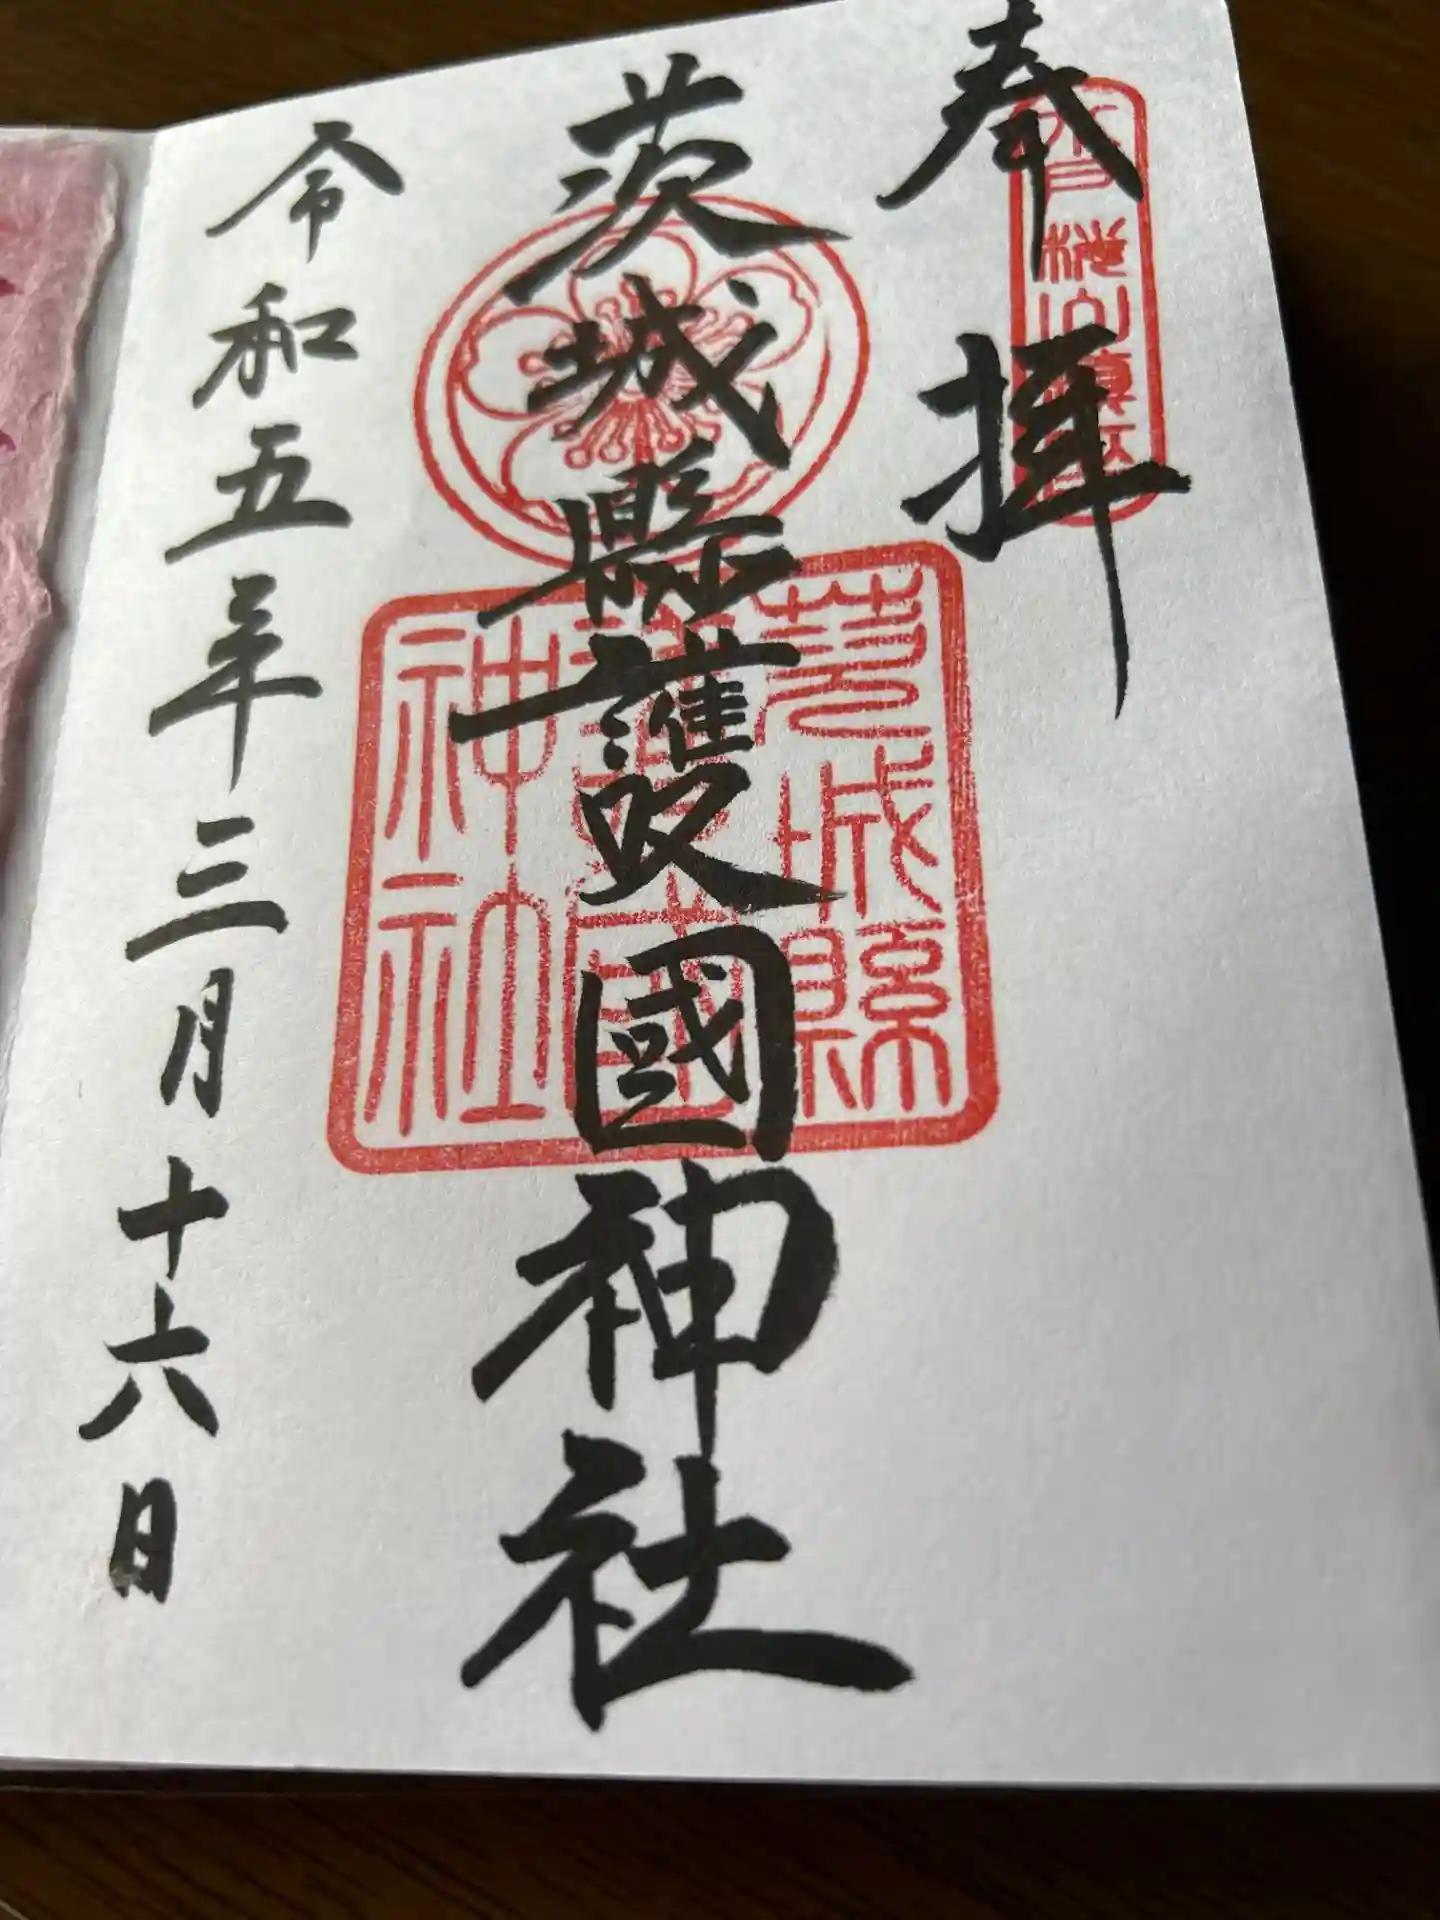 奉拝
茨城縣護國神社
茨城縣
護國
神社
令和五年三月十六日